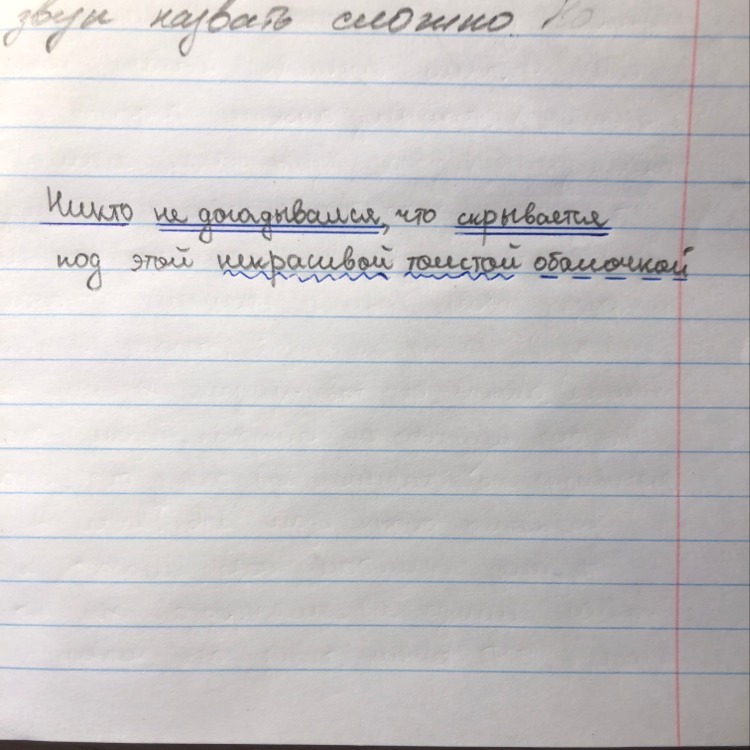 звук назвать сложно. Ко
Никто не догадывался, что скрывается
под этой некрасивой толстой оболочкой